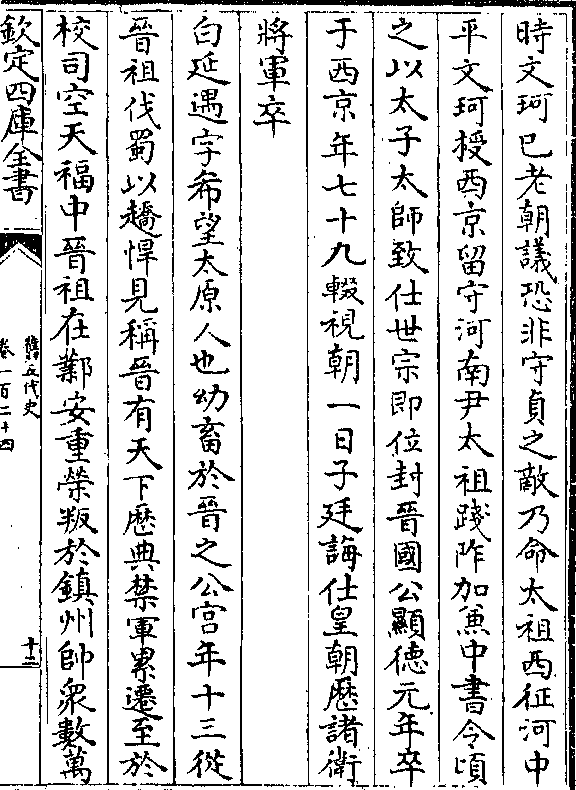 時文珂已老朝議恐非守貞之敵乃命太祖西征河中
平文珂授西京留守河南尹太祖踐阼加兼中書令頃
之以太子太師致仕世宗即位封晉國公顯德元年卒
于西京年七十九輟視朝一日子廷誨仕皇朝歷諸衛
將軍卒
白延遇字希望太原人也幼畜於晉之公宮年十三從
晉祖伐蜀以趫悍見稱晉有天下歷典禁軍累遷至於
校司空天福中晉祖在鄴安重榮叛於鎮州帥衆數萬
欽定四庫全書
舊五代史
卷一百二十四
十二